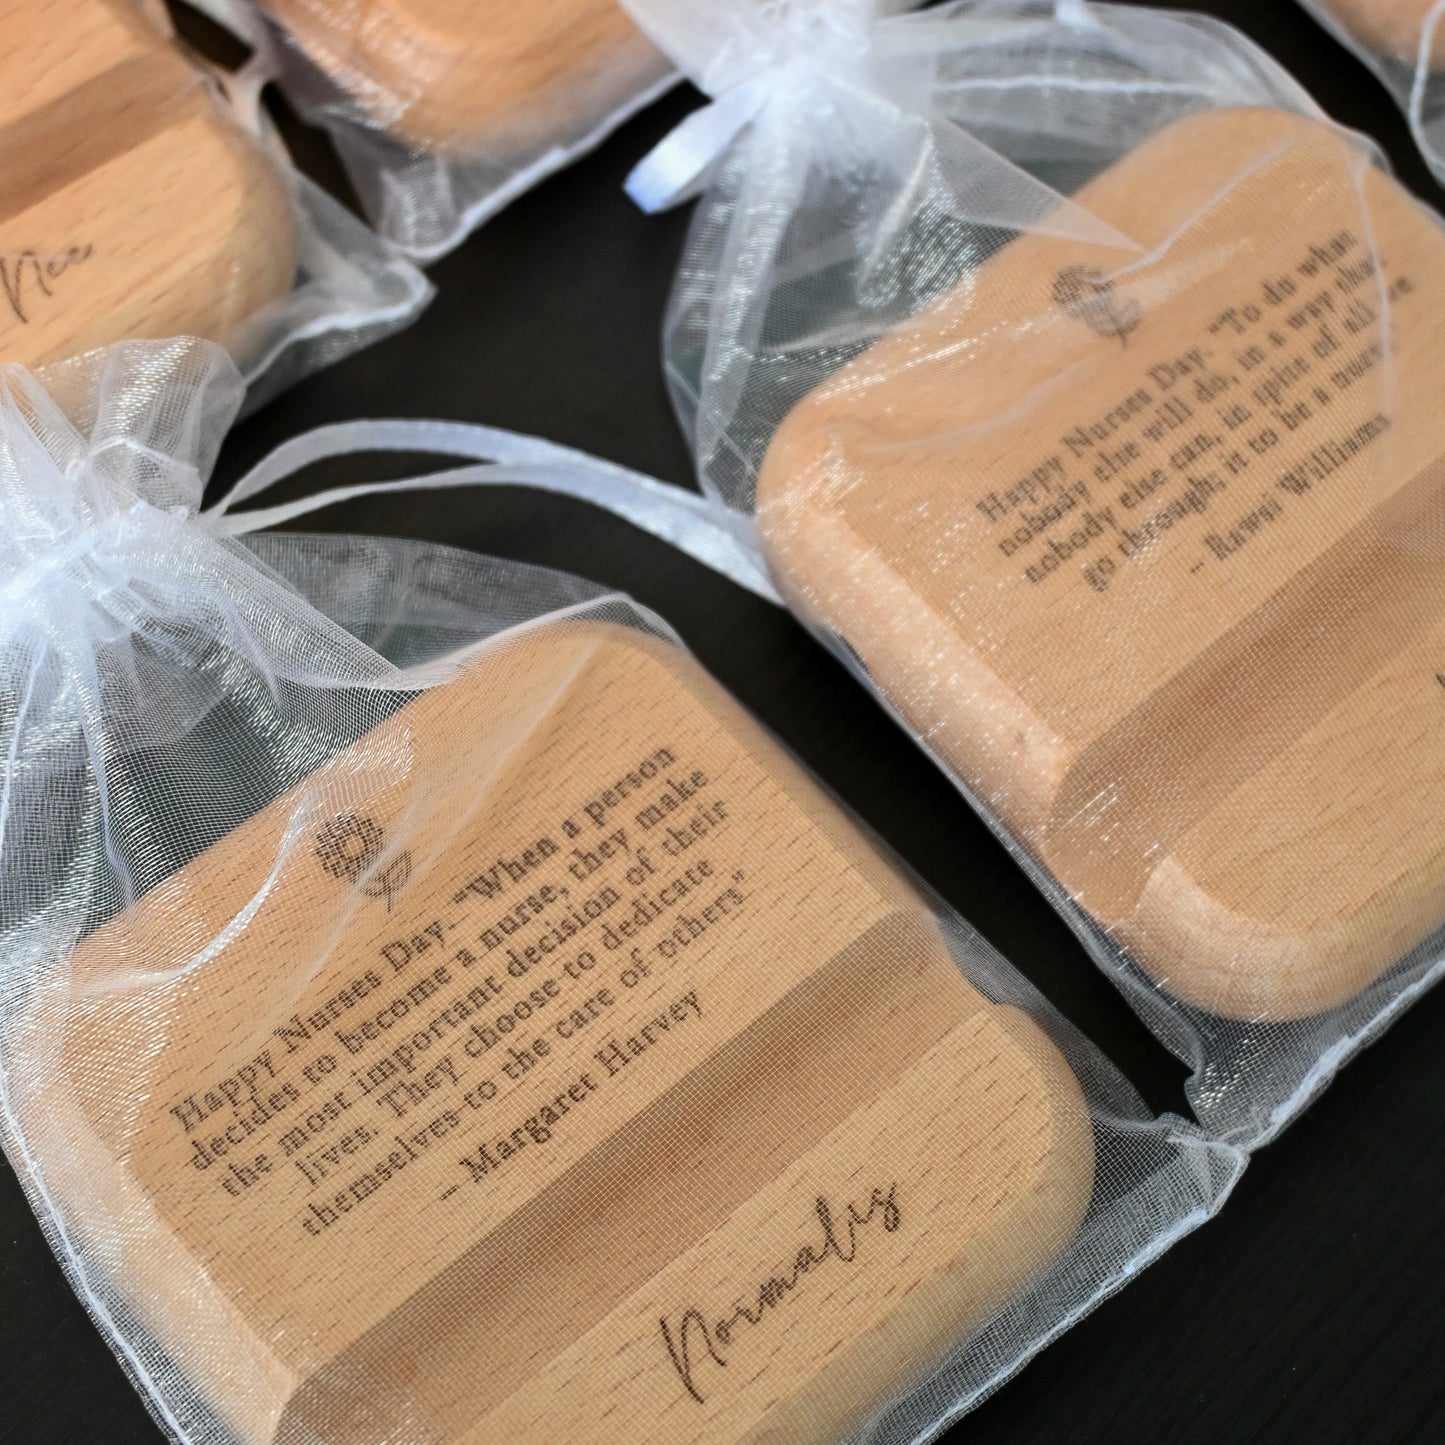 Nee
Happy Nurses Day. "To do what
nobody else will do, in a way that
nobody else can, in spite of all we
go through; it to be a nurse."
– Rawsi Williams
Happy Nurses Day. "When a person
decides to become a nurse, they make
the most important decision of their
lives. They choose to dedicate
themselves to the care of others"
– Margaret Harvey
Normalis